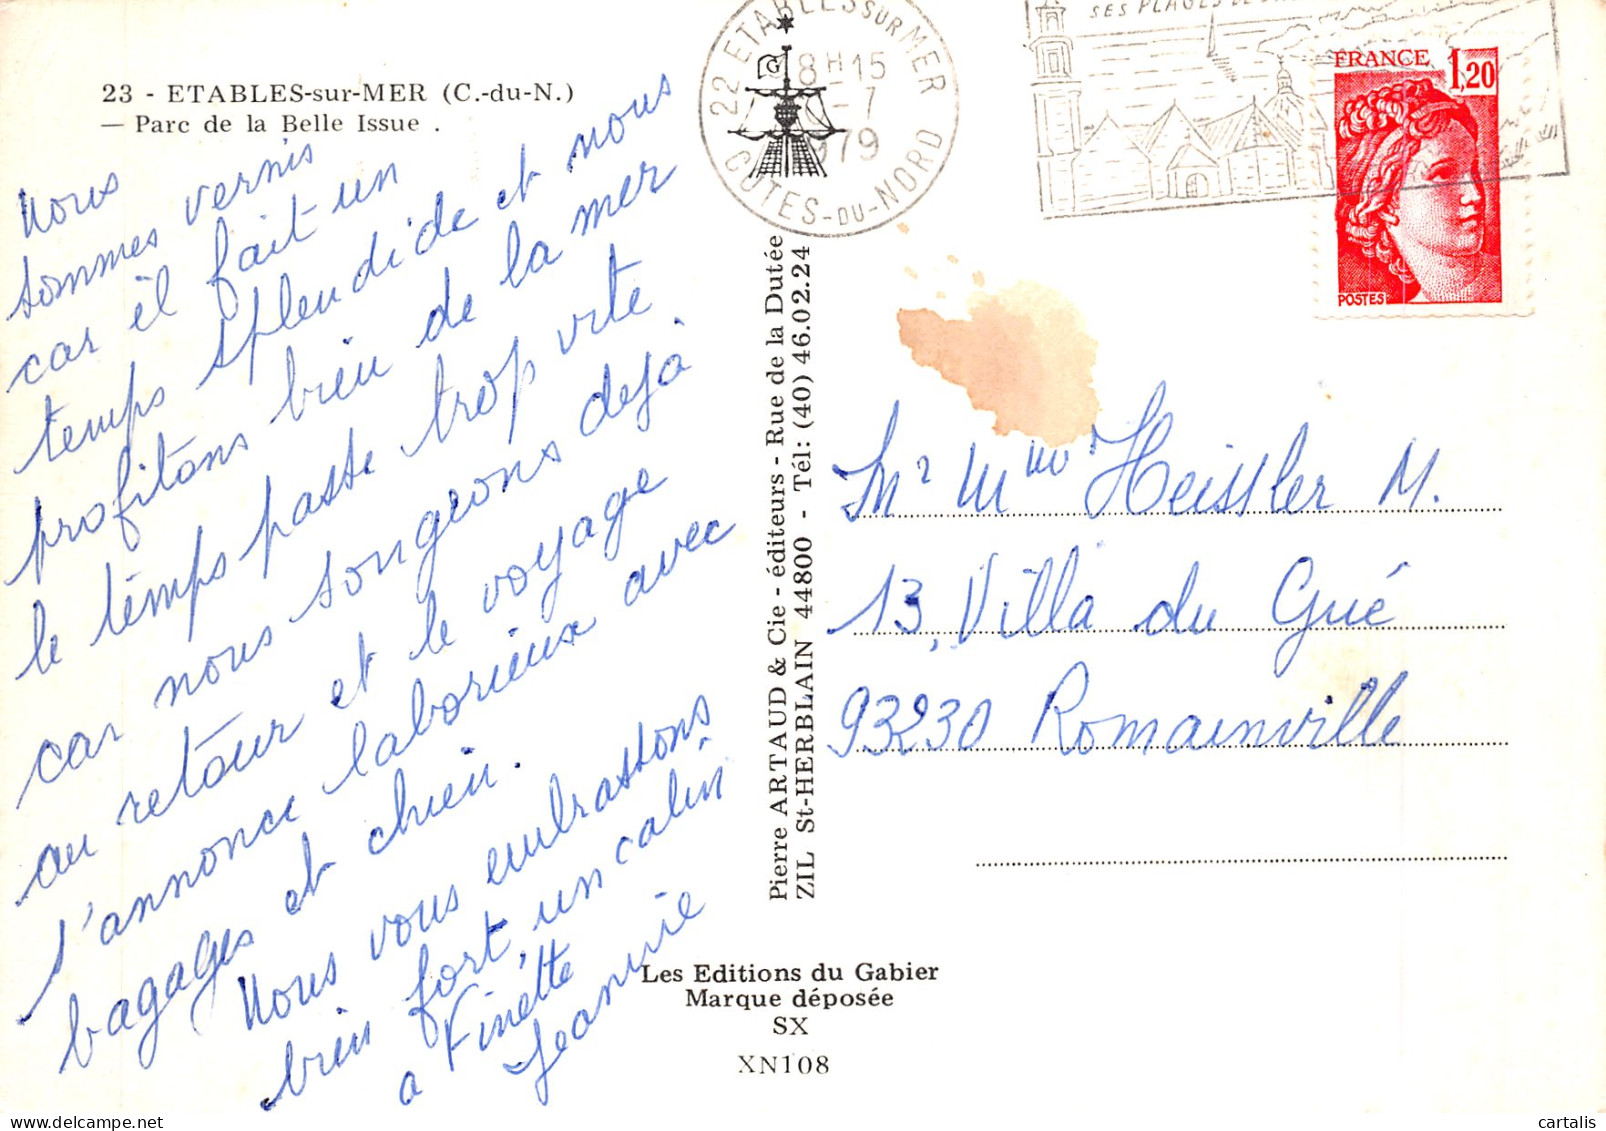 23 - ETABLES-sur-MER (C.-du-N.)
— Parc de la Belle Issue .
Nous
sommes vernis
car il fait un
temps splendide et nous
profitons bien de la mer
le temps passe trop vite
car nous songeons dejà
au retour et le voyage
s'annonce laborieux avec
bagages et chien.
Nous vous embrassons
bien fort, un calin
a Finette
Jeannie
22 ETABLES SUR MER
8H15
-7
1979
COTES-DU-NORD
G
SES PLAGES DE
FRANCE 1,20
POSTES
Pierre ARTAUD & Cie - éditeurs - Rue de la Dutée
ZIL St-HERBLAIN 44800 - Tél: (40) 46.02.24
Mr Mme Heissler M.
13, Villa du Gué
93230 Romainville
Les Editions du Gabier
Marque déposée
SX
XN108
cartalis